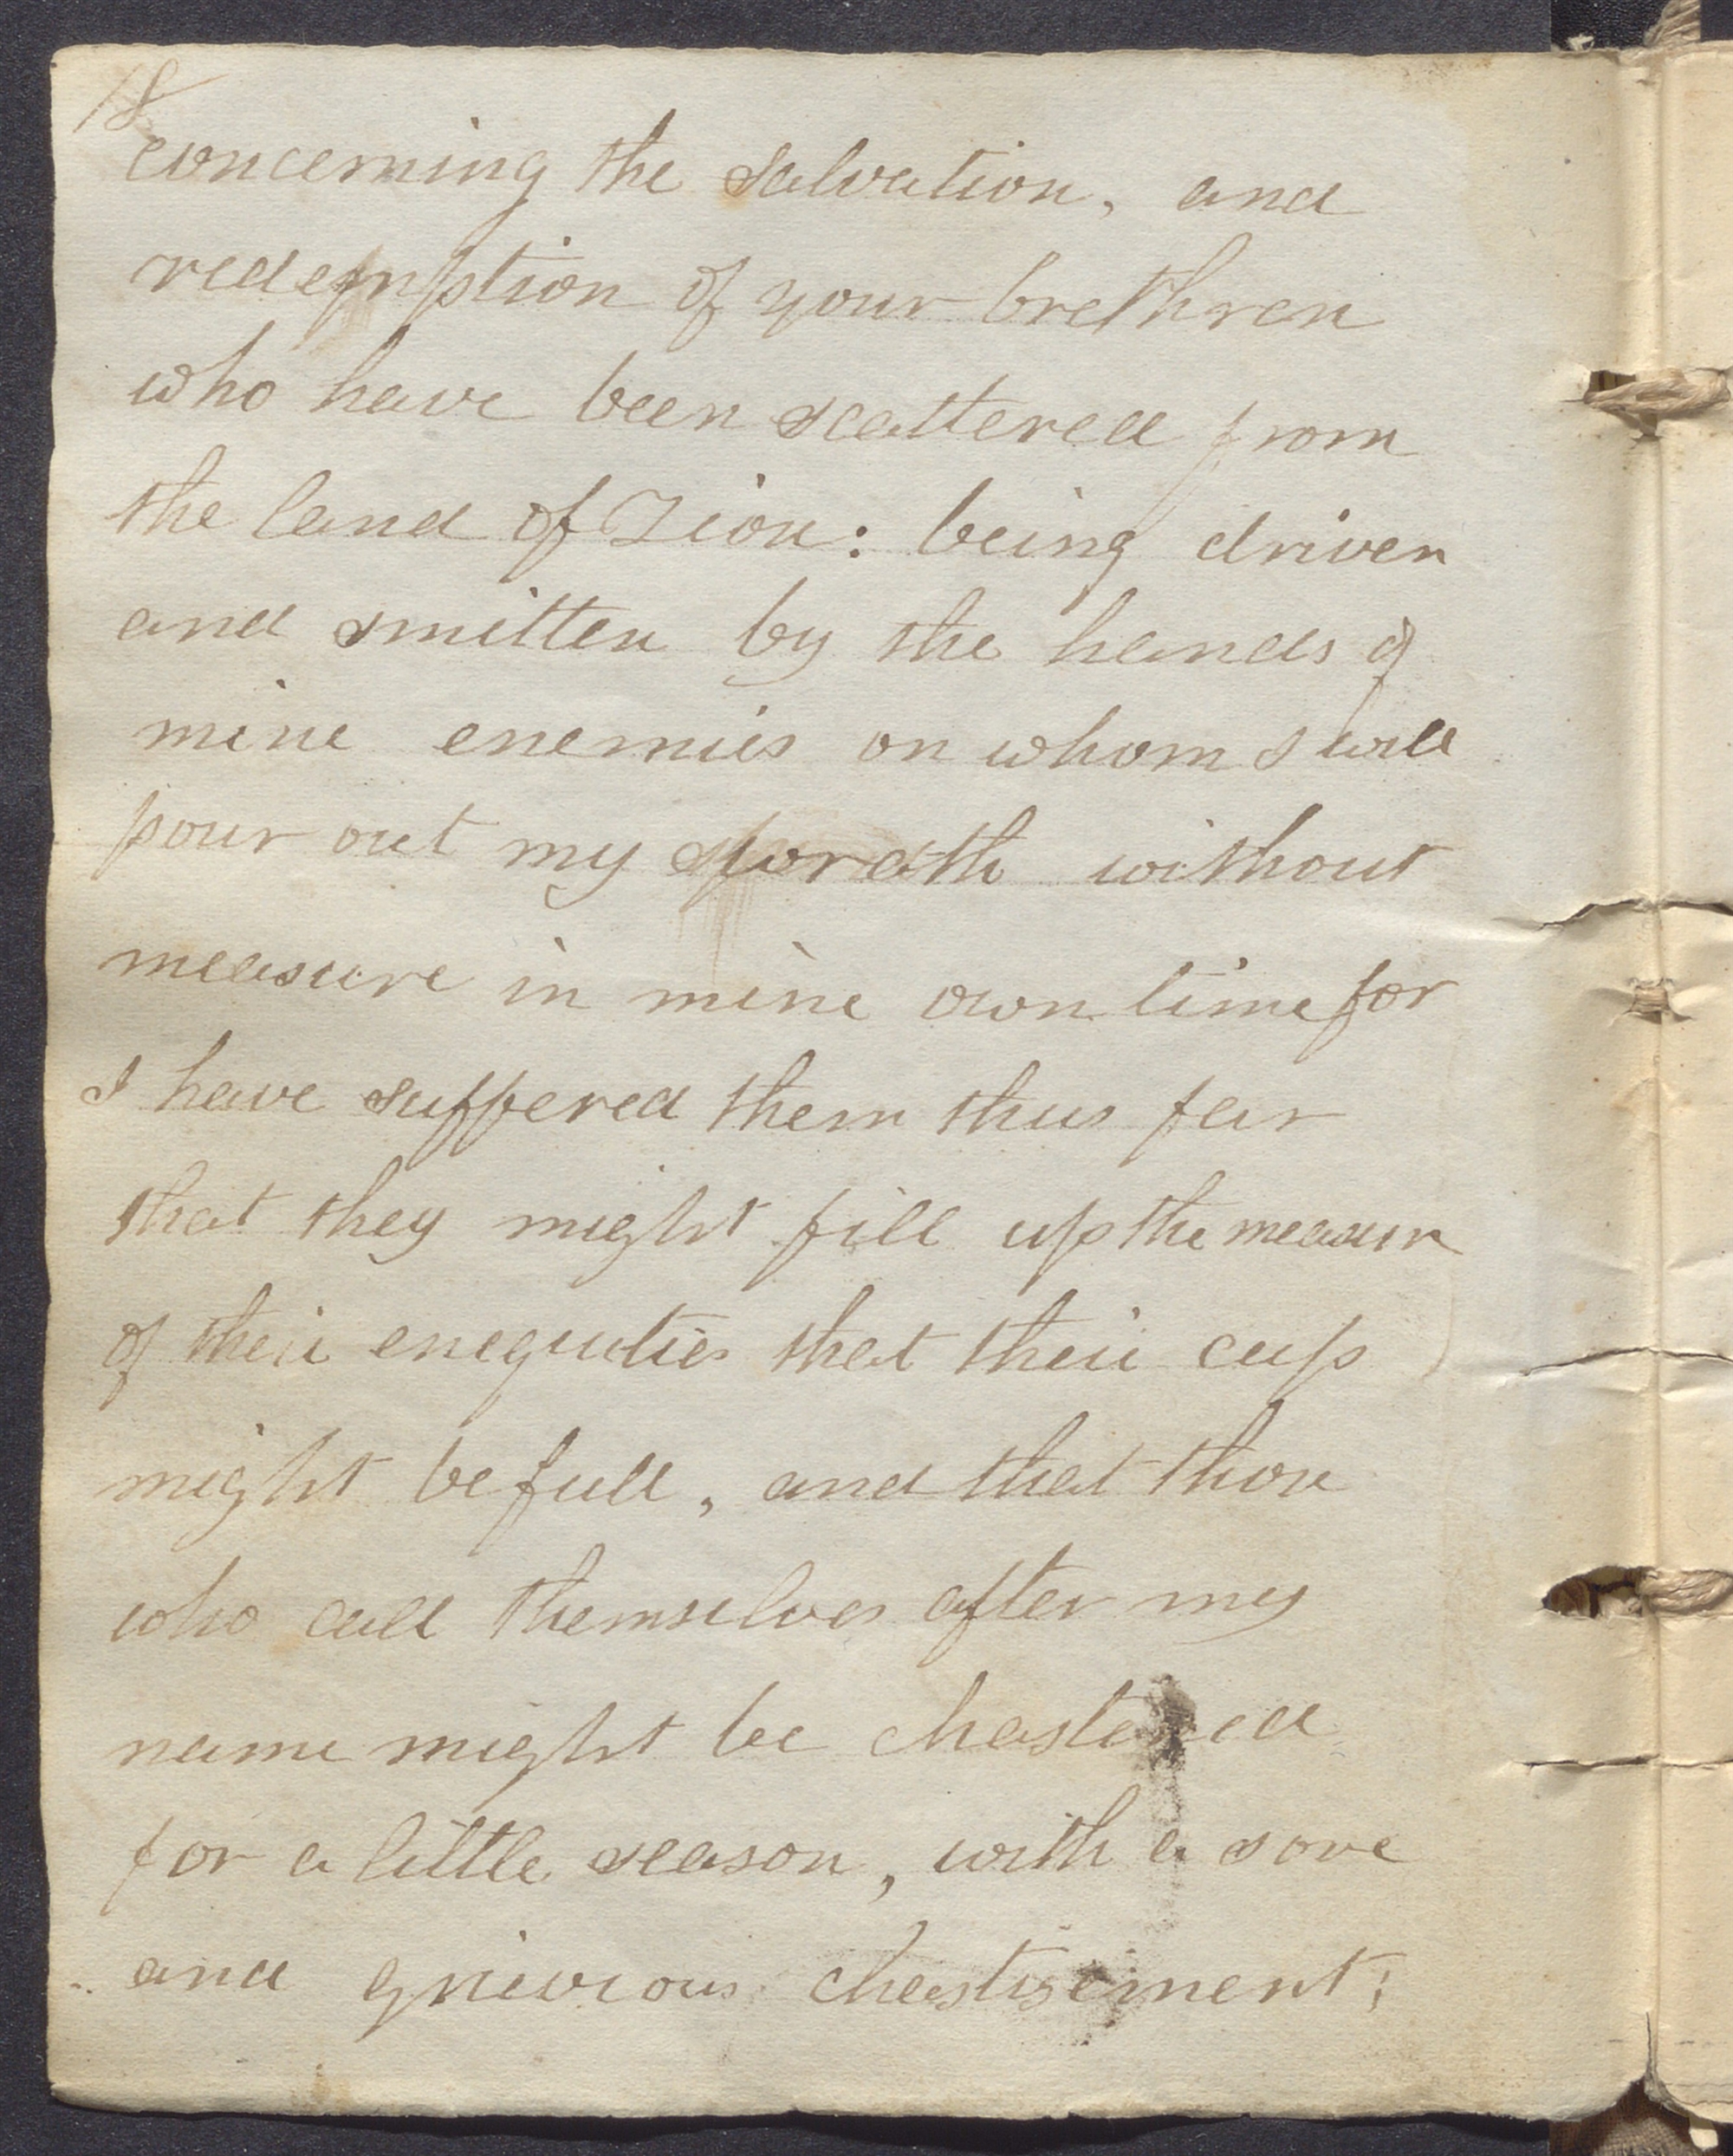 18
concerning the salvation, and
redemption of your brethren
who have been scattered from
the land of Zion: being driven
and smitten by the hands of
mine enemies on whom I will
pour out my wrath without
measure in mine own time for
I have suffered them thus far
that they might fill up the measur
of their enequities that their cup
might be full, and that those
who call themselves after my
name might be chastened
for a little season, with a sore
and grievious chastisement;